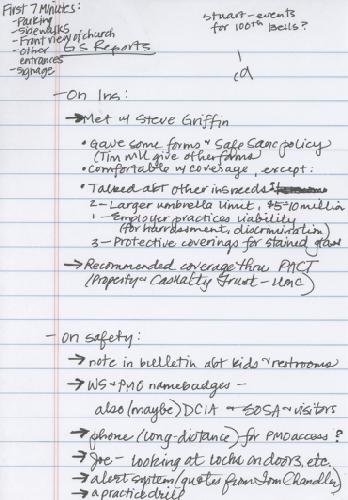 First 7 Minutes:
- Parking
- Sidewalks
- Front view of church
- other
entrances
- signage
GS Reports
Stuart - events
for 100th Bells?
- On Ins:
→ Met w/ Steve Griffin
• Gave some forms & Safe Sanc policy
(Tim MU give other forms
• Comfortable w/ coverage, except:
• Talked abt other ins needs:
2 - Larger umbrella limit, $5-10 million
1 - Employer practices liability
(for harrassment, discrimination)
3 - Protective coverings for stained glass
→ Recommended coverage thru PACT
(Property & Casualty Trust - UMC)
- On safety:
→ note in bulletin abt kids & restrooms
→ WS & PMO namebadges -
also (maybe) DCIA & EOSA & visitors
→ phone (long-distance) for PMO access?
→ Joe - looking at locks on doors, etc.
→ alert system (quotes from Tom Chandler)
→ a practice drill